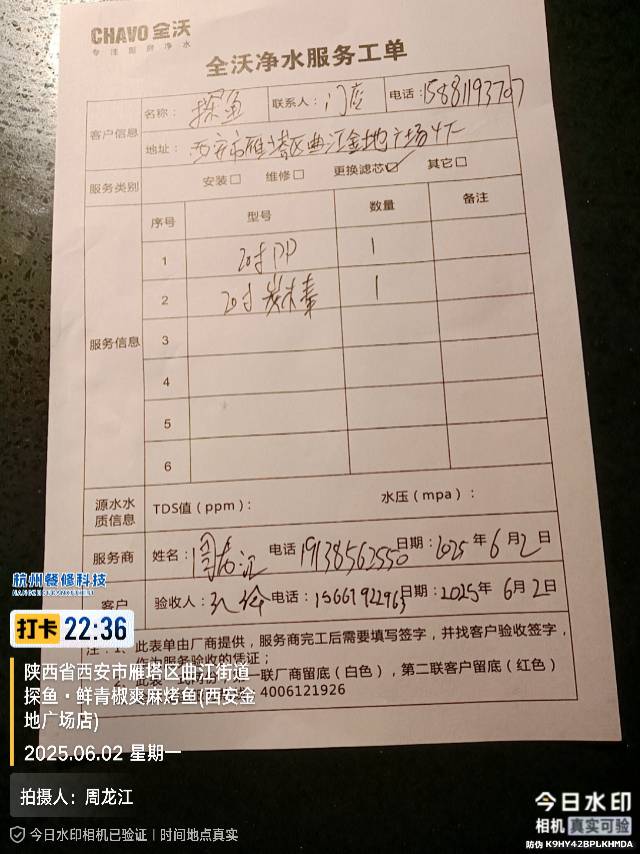 CHAVO 全沃
专注厨房净水
全沃净水服务工单
客户信息
名称： 探鱼 联系人： 门店 电话：15881193707
地址： 西安市雁塔区曲江金地广场4F
服务类别 安装□ 维修□ 更换滤芯☑ 其它□
服务信息
序号 型号 数量 备注
1 20寸PP 1
2 20寸炭 1
3
4
5
6
源水水质信息 TDS值（ppm）： 水压（mpa）：
服务商 姓名：周龙江 电话 19138562550 日期：2025年6月2日
客户 验收人： 电话：15667922963 日期：2025年6月2日
注：1、此表单由厂商提供，服务商完工后需要填写签字，并找客户验收签字，
作为服务验收的凭证；
2、此表一式两份，第一联厂商留底（白色），第二联客户留底（红色）
4006121926
杭州餐修科技
打卡 22:36
陕西省西安市雁塔区曲江街道
探鱼·鲜青椒爽麻烤鱼(西安金
地广场店)
2025.06.02 星期一
拍摄人：周龙江
今日水印相机已验证 | 时间地点真实
今日水印
相机 真实可验
防伪 K9HY42BPLKHMDA